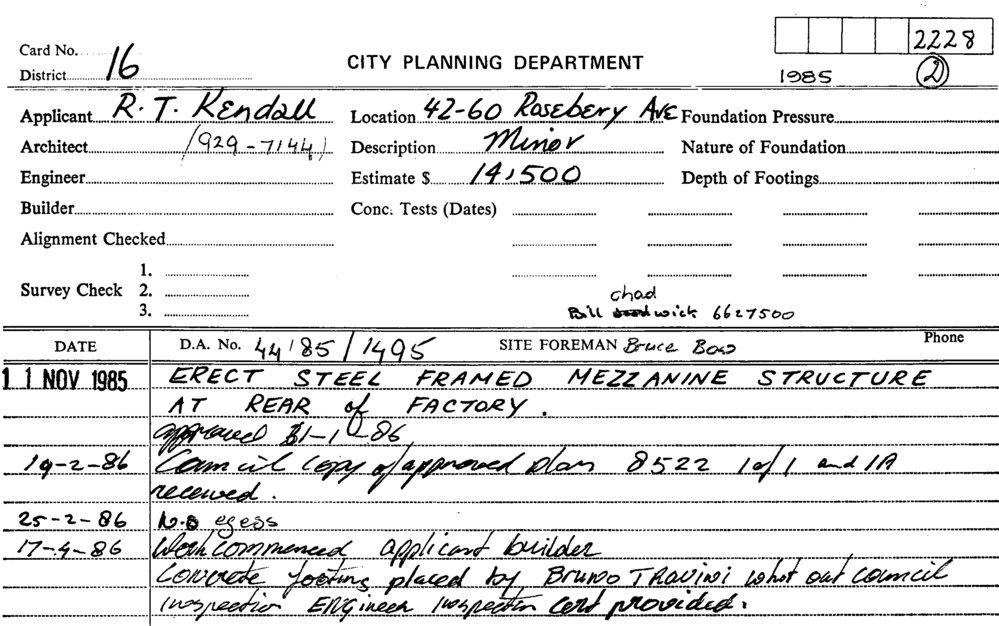 2228
Card No. 16
CITY PLANNING DEPARTMENT
District
1985 (2)
Applicant R. T. Kendall Location 42-60 Rosebery Ave Foundation Pressure
Architect (929-7144) Description Minor Nature of Foundation
Engineer Estimate $ 14,500 Depth of Footings
Builder Conc. Tests (Dates)
Alignment Checked
1.
Survey Check 2. chad
3. Bill wick 6627500
DATE D.A. No. 44 85/1495 SITE FOREMAN Bruce Bow Phone
11 NOV 1985 ERECT STEEL FRAMED MEZZANINE STRUCTURE
AT REAR of FACTORY.
approved 31-1-86
19-2-86 Council copy of approved plan 8522 1 of 1 and 1A
received.
25-2-86 N.O egess
17-4-86 Work commenced applicant builder
Concrete footing placed by Bruno TRAVINI whot out council
inspection ENGineer inspection cert provided.